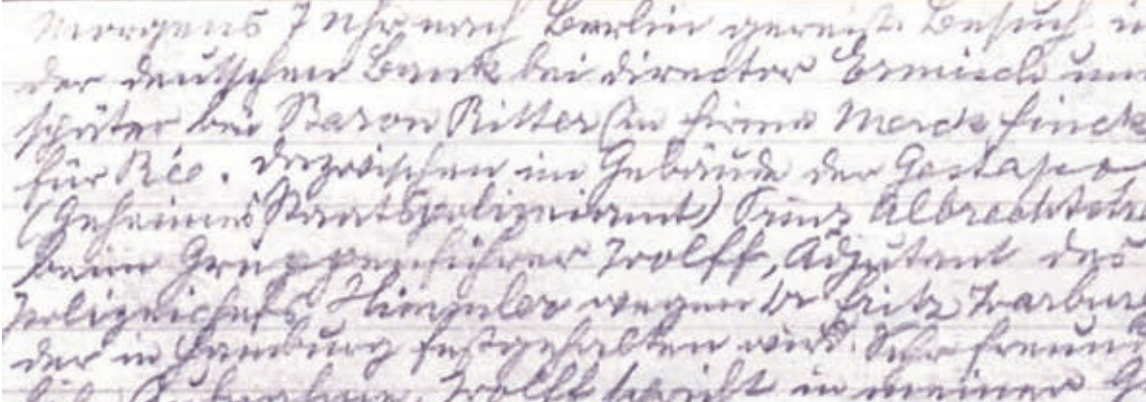 Morgens 7 Uhr nach Berlin gereist. Besuch in
der deutschen Bank bei Director Ermisch und
später bei Baron Ritter (in Firma Merck Finck
für Rée. Dazwischen im Gebäude der Gestapo
(Geheimes Staatspolizeiamt) Prinz Albrechtstr
beim Gruppenführer Wolff, Adjutant des
Polizeichefs Himmler wegen Dr Fritz Warburg
der in Hamburg festgehalten wird. Sehr freund
lich Wolff spricht in meiner G